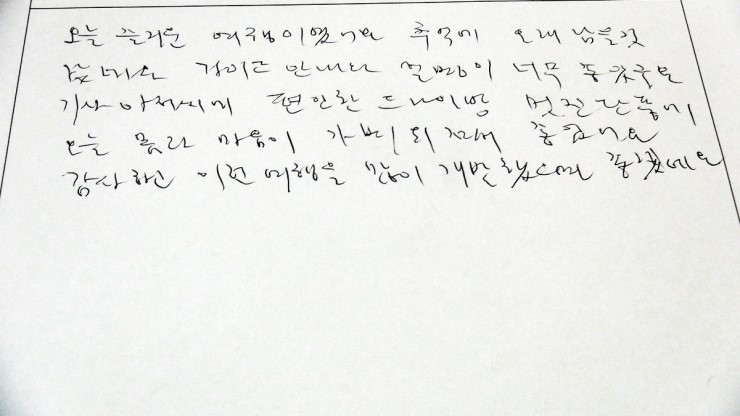 오늘 즐거운 여행이였어요 추억에 오래 남을것
같네요 가이드 안내와 설명이 너무 좋았구요
기사 아저씨에 편안한 드라이빙 멋진 단풍에
오늘 몸과 마음이 가벼워져서 좋았어요
감사하고 이런 여행을 많이 개발했으면 좋겠네요